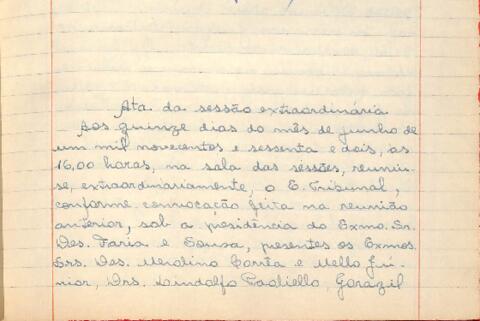 Ata da sessão extraordinária
Aos quinze dias do mês de junho de
um mil novecentos e sessenta e dois, às
16,00 horas, na sala das sessões, reuniu-
se, extraordinariamente, o E. Tribunal,
conforme convocação feita na reunião
anterior, sob a presidência do Exmo. Sr.
Des. Faria e Sousa, presentes os Exmos.
Srs. Des. Merolino Corrêa e Mello Jú-
nior, Drs. Lindolfo Paoliello, Gorazil